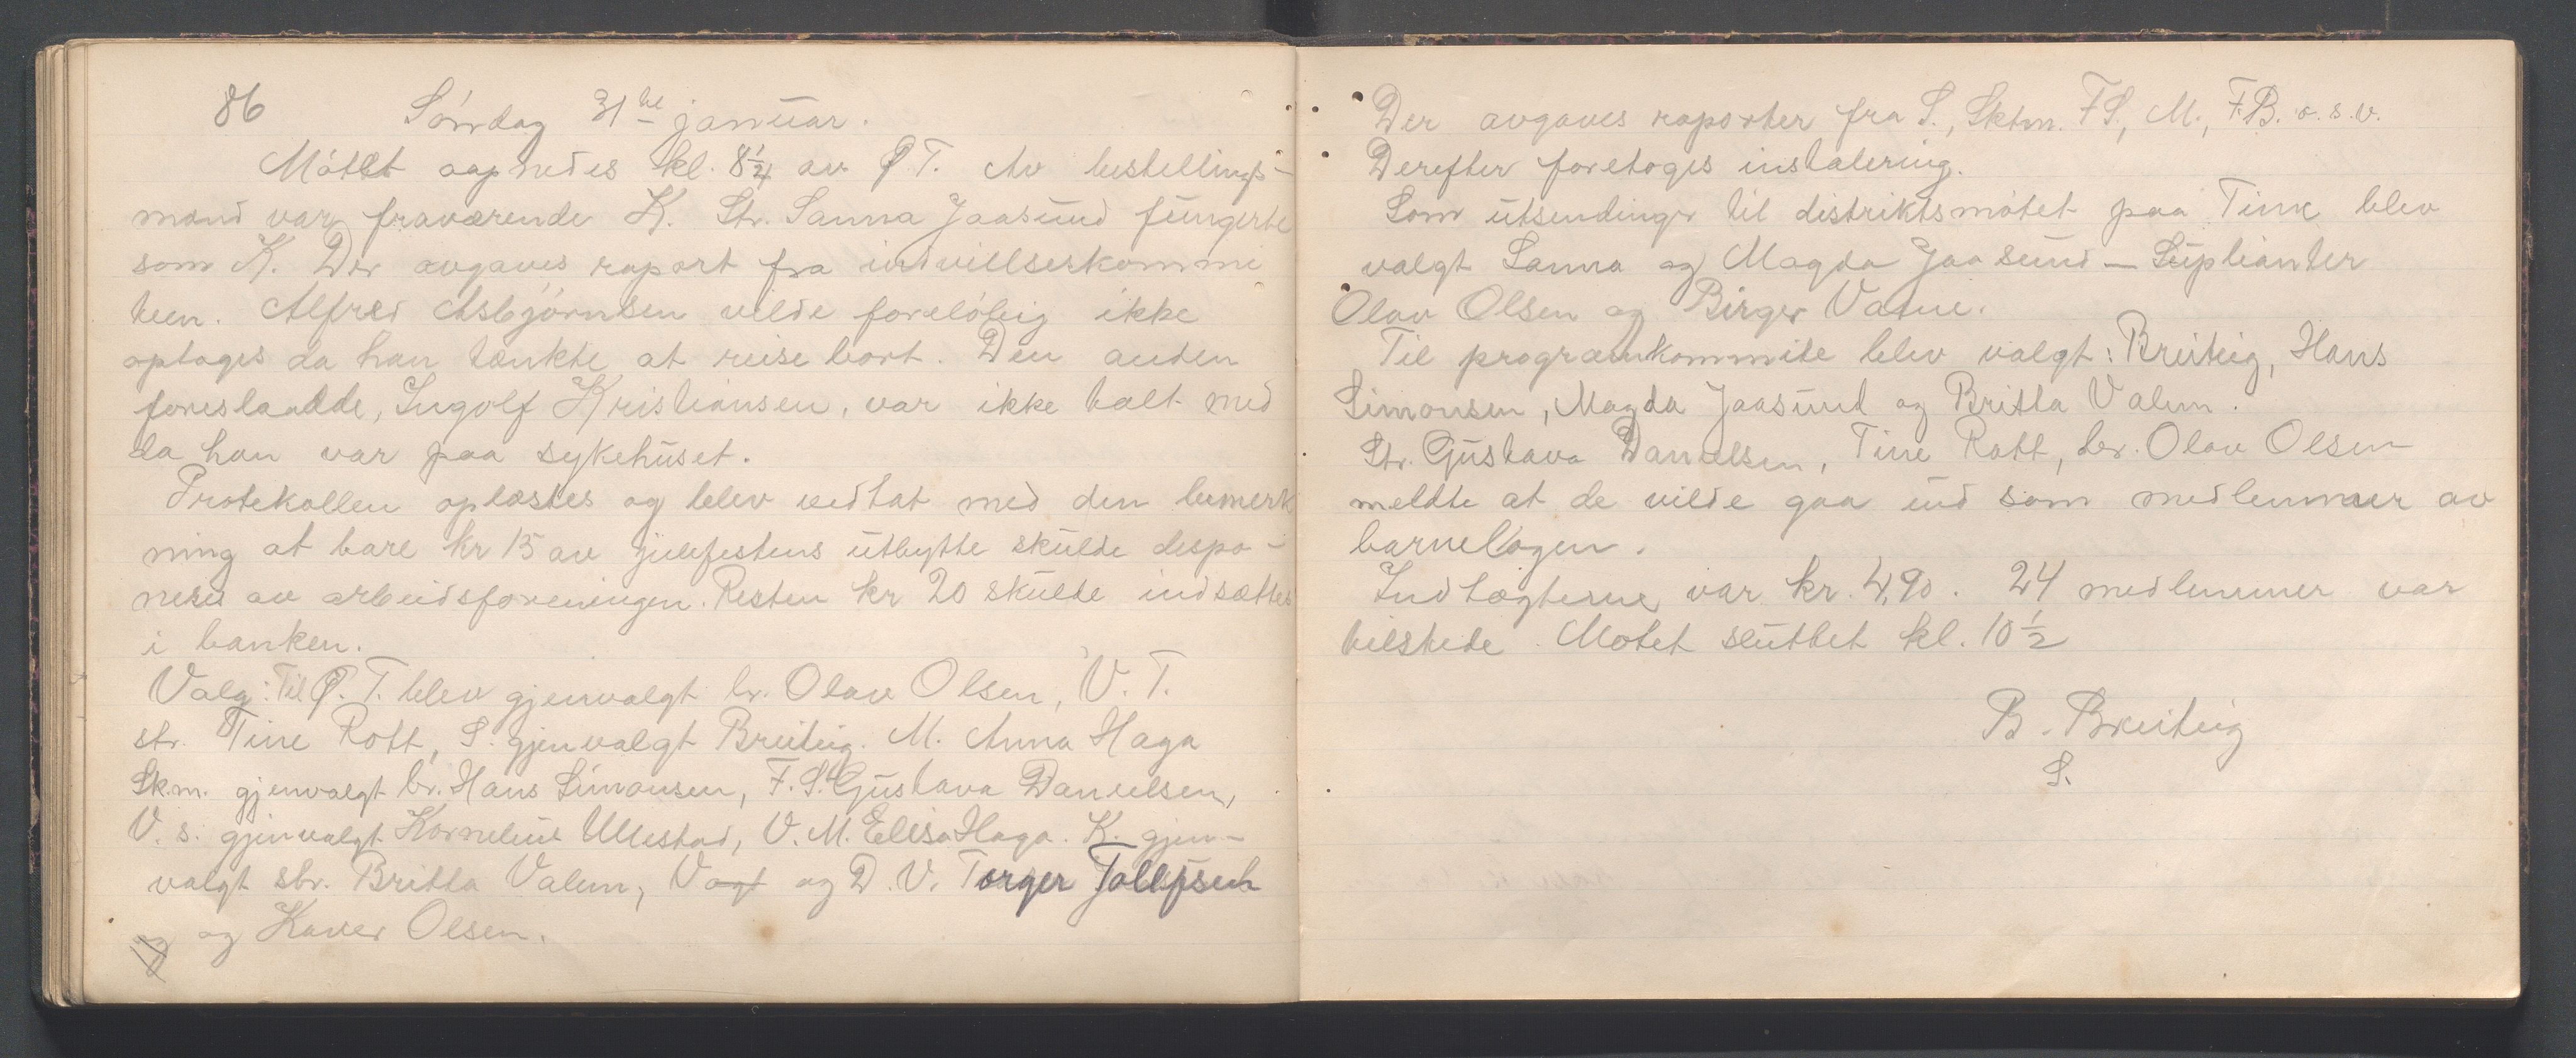 86 Søndag 31te januar.
Møtet aapnedes kl. 8 1/4 av P T. Av bestillings-
mænd var fraværende K. Str. Sanna Jaasund fungerte
som K. Der avgaves raport fra indvillserkommi
teen. Alfred Asbjørnsen vilde foreløbig ikke
optages da han tænkte at reise bort. Den anden
foreslaadde, Ingolf Kristiansen, var ikke talt med
da han var paa sykehuset.
Protekollen oplæstes og blev vedtat med den bemerk
ning at bare kr 15 av julefestens utbytte skulde dispo-
neres av arbeidsforeningen. Resten kr 20 skulde indsættes
i banken.
Valg: Til P. T. blev gjenvalgt br. Olav Olsen, V. T.
str. Tine Rott, S. gjenvalgt Breiteig. M. Anna Haga
Skm. gjenvalgt br. Hans Simonsen, F. S. Gustava Danielsen,
V. s. gjenvalgt Kornelius Ullestad, V. M. Elisa Haga. K. gjen-
valgt str. Britta Valem, Vagt og D. V. Torger Tollefsen
og og Kaver Olsen.
Der avgaves raporter fra S., Sktm. FS., M., F.B. o. s. v.
Derefter foretoges instalering.
Som utsendinger til distriktsmøtet paa Time blev
valgt Sanna og Magda Jaasund — Suplianter
Olav Olsen og Birger Vatne.
Til programkommite blev valgt: Breiteig, Hans
Simonsen, Magda Jaasund og Britta Valem.
Str. Gustava Danielsen, Tine Rott, br. Olav Olsen
meldte at de vilde gaa ind som medlemmer av
barnelogen.
Indtægterne var kr. 4,90. 24 medlemmer var
tilstede. Møtet sluttet kl. 10 1/2
B. Breiteig
S.